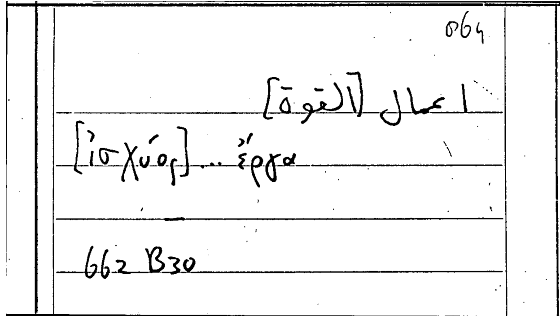 064
اعمال [القوة]
[ἰσχύος]... ἔργα
662 B30